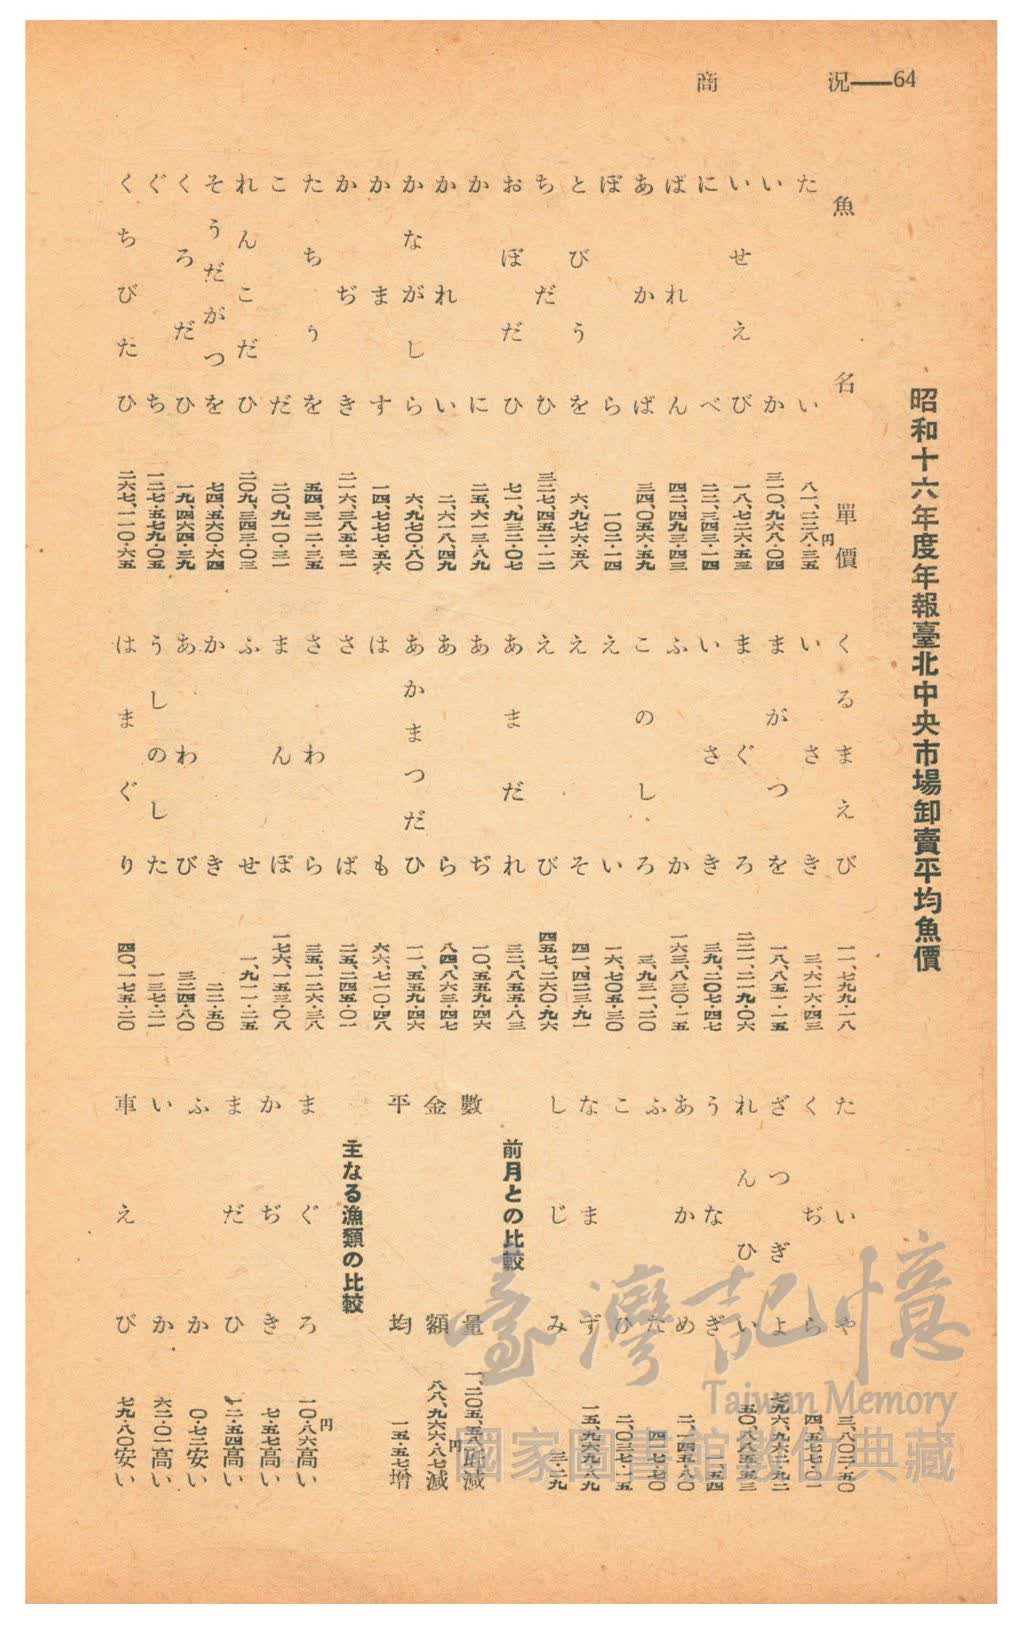 商況——64
昭和十六年度年報臺北中央市場卸賣平均魚價
魚名 單價
たい 八一、二二八・三五円
いか 三一〇、九六八・〇四
いせえび 一八、七二六・五三
にべ 二二、三四三・一四
ばれん 四二、四九三・四三
あかば 三四、〇五六・五九
ぼら 一〇二・一四
とびうを 六、九七六・五八
ちだひ 三二七、四五二・一二
おぼだひ 七一、九三二・〇七
かに 二五、六一三・八九
かれい 二、六一八・四九
かながしら 六、九七〇・八〇
かます 一四、七七七・五六
かぢき 二一六、三八五・三一
たちうを 五四、三一二・三五
こだ 二〇、九一〇・三一
れんこだひ 二〇九、三四三・〇三
そうだがつを 七四、五六〇・六四
くろだひ 一九、四六四・三九
ぐち 一二七、五七九・〇五
くちびたひ 二六七、一一〇・六五
くるまえび 一一、七九九・一八
いさき 三、六一六・四三
まがつを 一八、八五一・一五
まぐろ 二二一、二一九・〇六
いさき 三九、二〇七・四七
ふか 一六三、八三〇・一五
このしろ 三、九三一・二〇
えい 一六、七〇五・三〇
えそ 四一、四二三・九一
えび 四五七、二六〇・九六
あまだれ 三二、八五五・八三
あぢ 一〇、五五九・四六
あら 八四、八六三・四七
あかまつだひ 一一、五五九・四六
はも 六六、七一〇・四八
さば 二五、二四五・〇一
さわら 三五、一二六・三八
まんぼ 一七六、一五三・〇八
ふせ 一、九一一・二五
かき 二二・五〇
あわび 三二四・八〇
うしのした 一三七・二一
はまぐり 四〇、一七五・二〇
たいや 三、八〇二・五〇
くぢら 四五七・〇一
ざつぎよ 七九六、九六二・九二
れんひい 五〇、八八五・五三
うなぎ
あかめ 二、一四五・八〇
ふな 四・七〇
こひ 二、〇三七・一五
なまず 一五、九六九・八九
しじみ 三・二九
前月との比較
數量 一、二〇五、五八瓩減
金額 八八、九六六・八七円減
平均 一五・五七增
主なる漁類の比較
まぐろ 一〇・八六円高い
かぢき 七・五七高い
まだひ 一二・五四高い
ふか 〇・七二安い
いか 六二・〇二高い
車えび 七九・八〇安い
臺灣記憶
Taiwan Memory
國家圖書館數位典藏